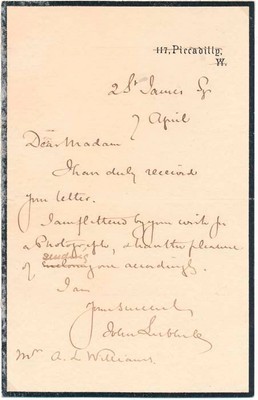 117, Piccadilly,
W.
2 St James Sq
7 April
Dear Madam
I have duly received
your letter.
I am flattered by your wish for
a Photograph, & have the pleasure
of sending enclosing one accordingly.
I am
yours sincerely
John Lubbock
Mrs A. L Williams